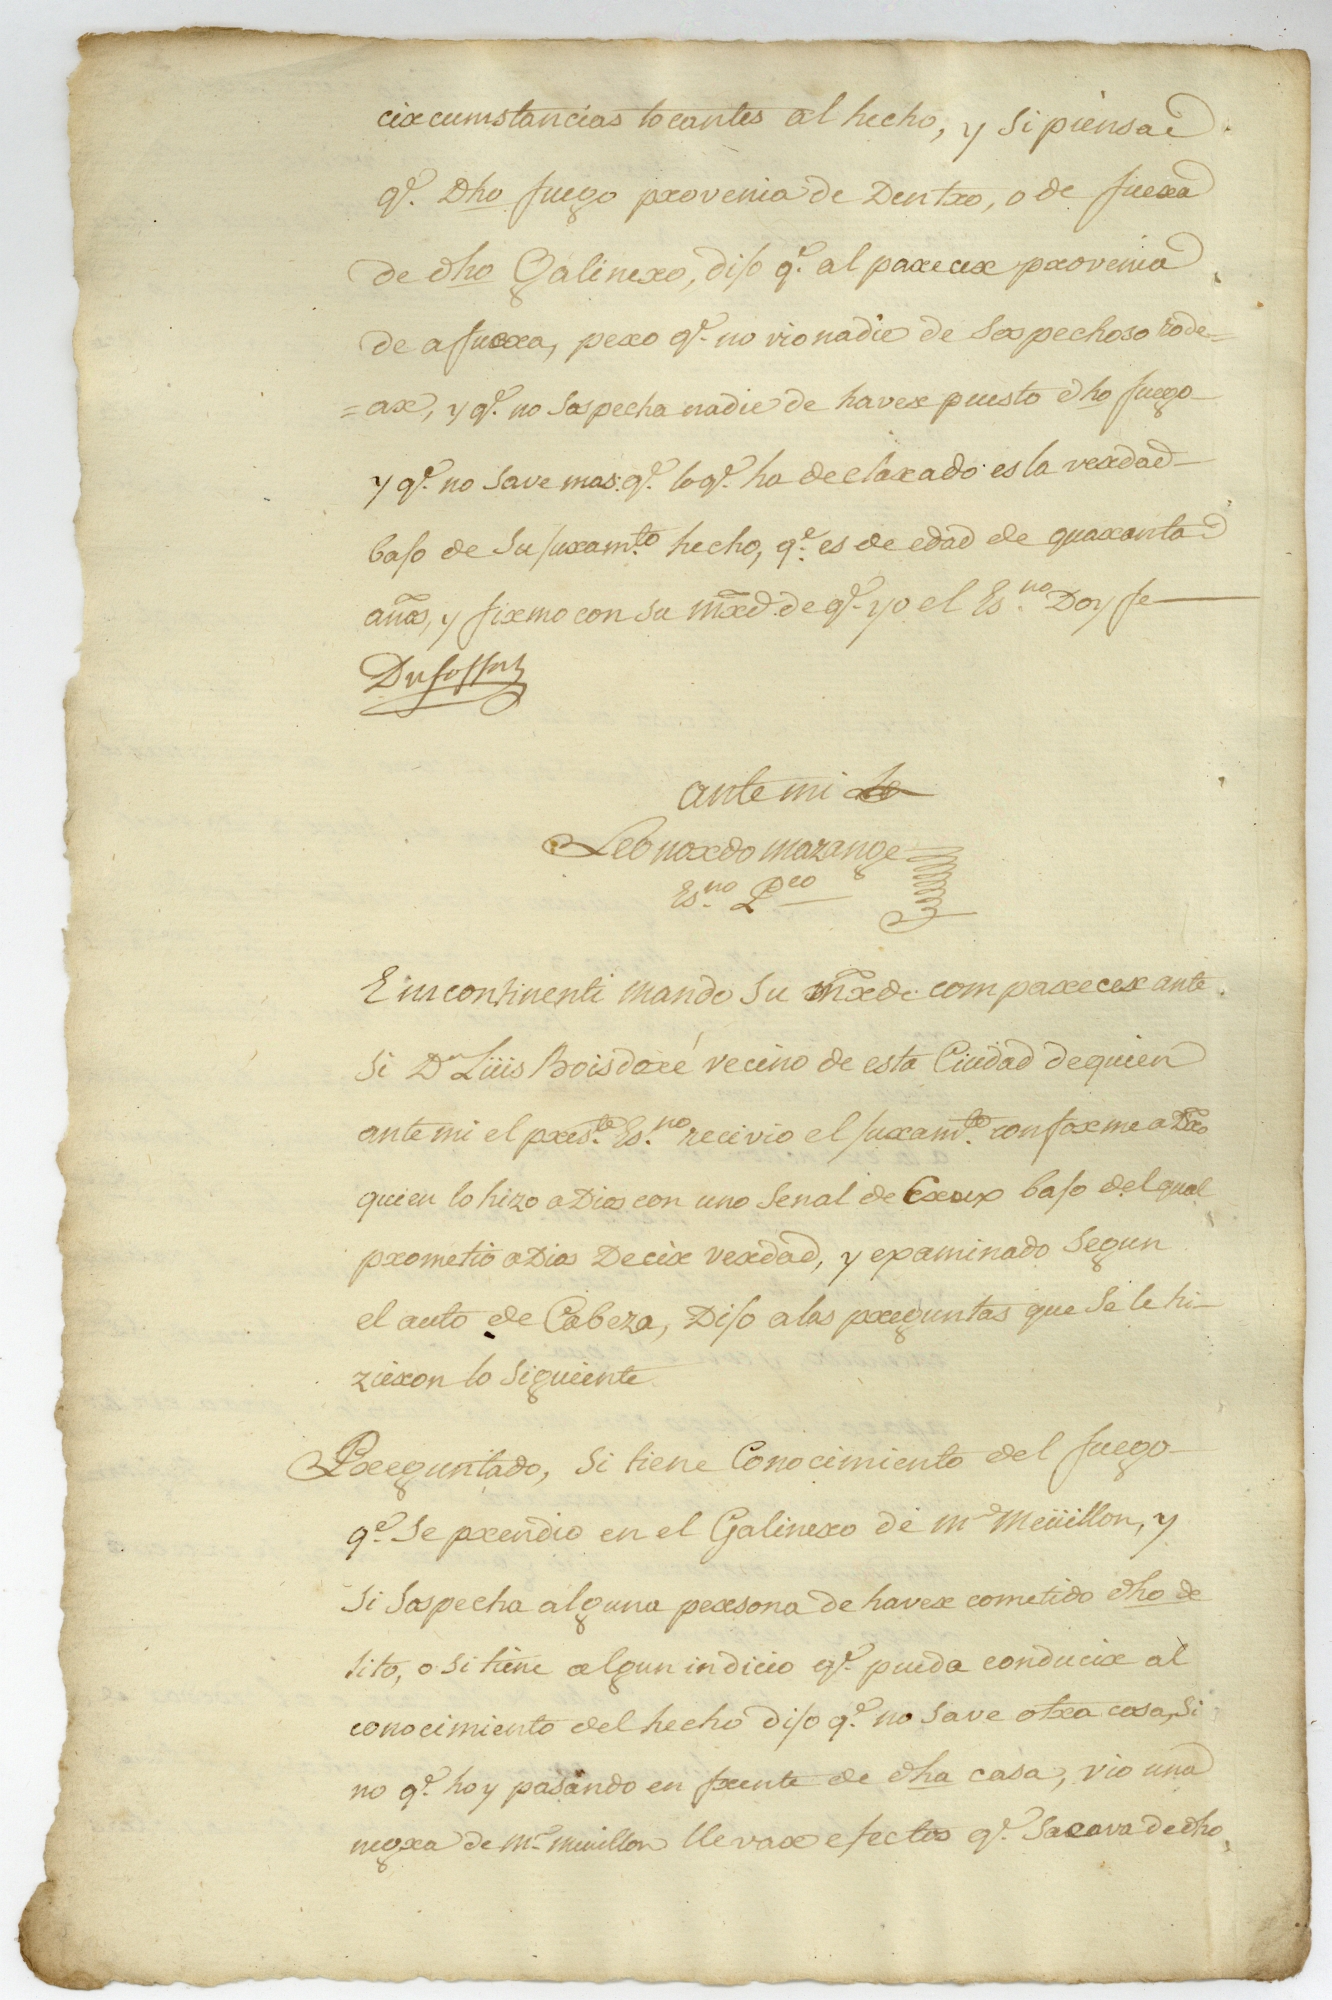 circumstancias tocantes al hecho, y si piensa
q.e Dho fuego provenia de Dentro, o de fuera
de dho Galinero, dijo q.e al parecer provenia
de afuera, pero q.e no vio nadie de sospechoso rode=
=ar, y q.e no sospecha nadie de haver puesto dho fuego
y q.e no save mas: q.e lo q.e ha declarado es la verdad
bajo de su juram.to hecho, q.e es de edad de quaranta
años, y firmo con su mrd. de q.e yo el Es.no Doy fe
Dufossat
ante mi
Leonardo mazange
Es.no P.co
E incontinenti mando su mrd. comparecer ante
si D.n Lüis Boisdoré vecino de esta Ciudad de quien
ante mi el pres.te Es.no recivio el juram.to conforme a Dro
quien lo hizo a Dios con uno senal de Crux bajo del qual
prometio a Dios Decir verdad, y examinado segun
el auto de Cabeza, Dijo a las preguntas que se le hi-
zieron lo siguiente
Preguntado, si tiene Conocimiento del fuego
q.e se prendio en el Galinero de M.r Meüillon, y
si sospecha alguna persona de haver cometido dho de
lito, o si tiene algun indicio q.e pueda conducir al
conocimiento del hecho dijo q.e no save otra cosa, si
no q.e hoy pasando en frente de dha casa, vio una
negra de M.r meuillon llevar efectos q.e sacava de dho